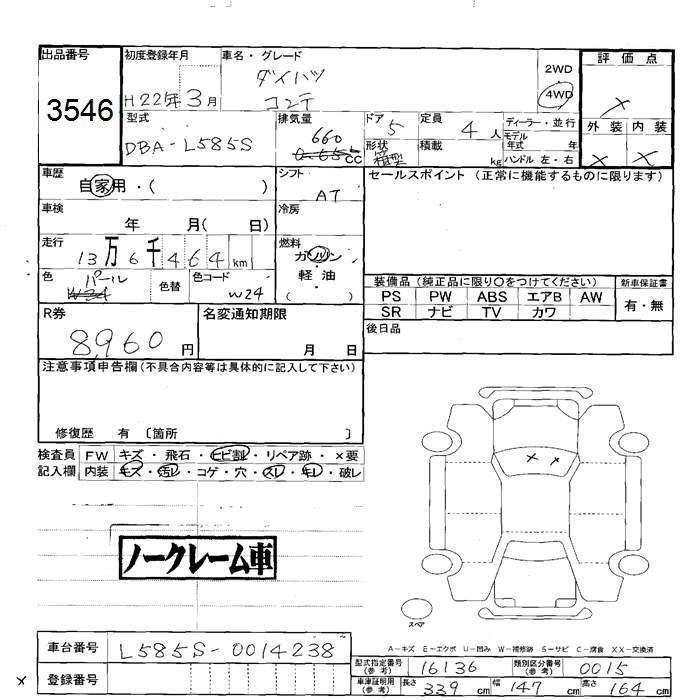 出品番号 初度登録年月 車名・グレード 評価点
3546 H22年3月 ダイハツ コンテ 2WD 4WD ×
型式 排気量 ドア 定員 ディーラー・並行 外装 内装
DBA-L585S 660 0.65 cc 5 4人 モデル年式 年 × ×
形状 箱型 積載 kg ハンドル 左・右
車歴 シフト セールスポイント (正常に機能するものに限ります)
自家用・( ) AT
車検 冷房
年 月( 日)
走行 燃料
13万6千464km ガソリン・軽・油 ( )
色 パール W24 色替 色コード W24
装備品 (純正品に限り○をつけてください) 新車保証書
PS PW ABS エアB AW 有・無
SR ナビ TV カワ
R券 名変通知期限 後日品
8,960円 月 日
注意事項申告欄(不具合内容等は具体的に記入して下さい)
修復歴 有 〔箇所 〕
検査員 FW キズ・飛石・ヒビ割・リペア跡・×要
記入欄 内装 キズ・汚レ・コゲ・穴・スレ・キレ・破レ
× ×
ノークレーム車
スペア
A-キズ E-エクボ U-凹み W-補修跡 S-サビ C-腐食 XX-交換済
車台番号 L585S-0014238
型式指定番号 (参考) 16136 類別区分番号 (参考) 0015
× 登録番号
車庫証明用 (参考) 長さ 339cm 幅 147cm 高さ 164cm